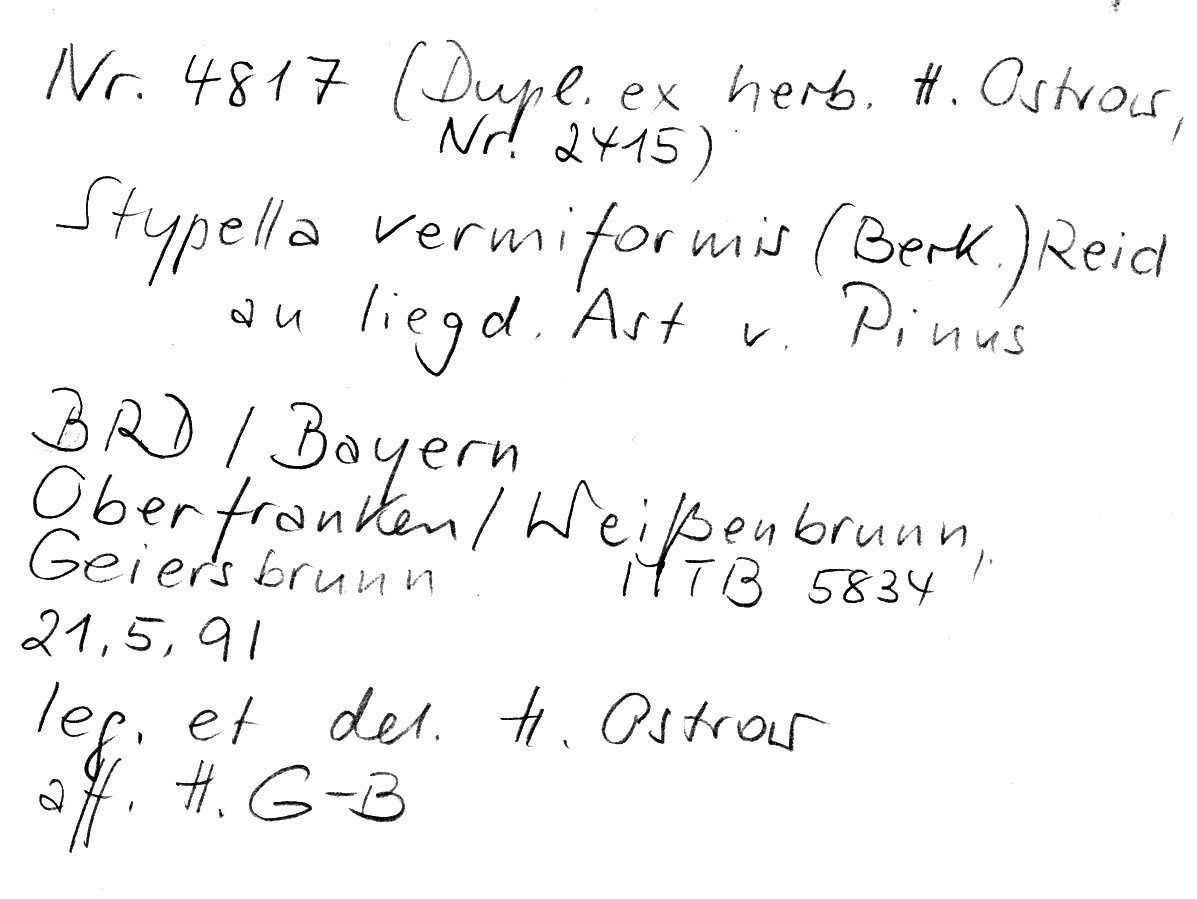 Nr. 4817 (Dupl. ex herb. H. Ostrow,
Nr. 2415)
Stypella vermiformis (Berk.) Reid
an liegd. Ast v. Pinus
BRD / Bayern
Oberfranken / Weißenbrunn,
Geiersbrunn MTB 5834
21.5.91
leg. et det. H. Ostrow
aff. H. G-B